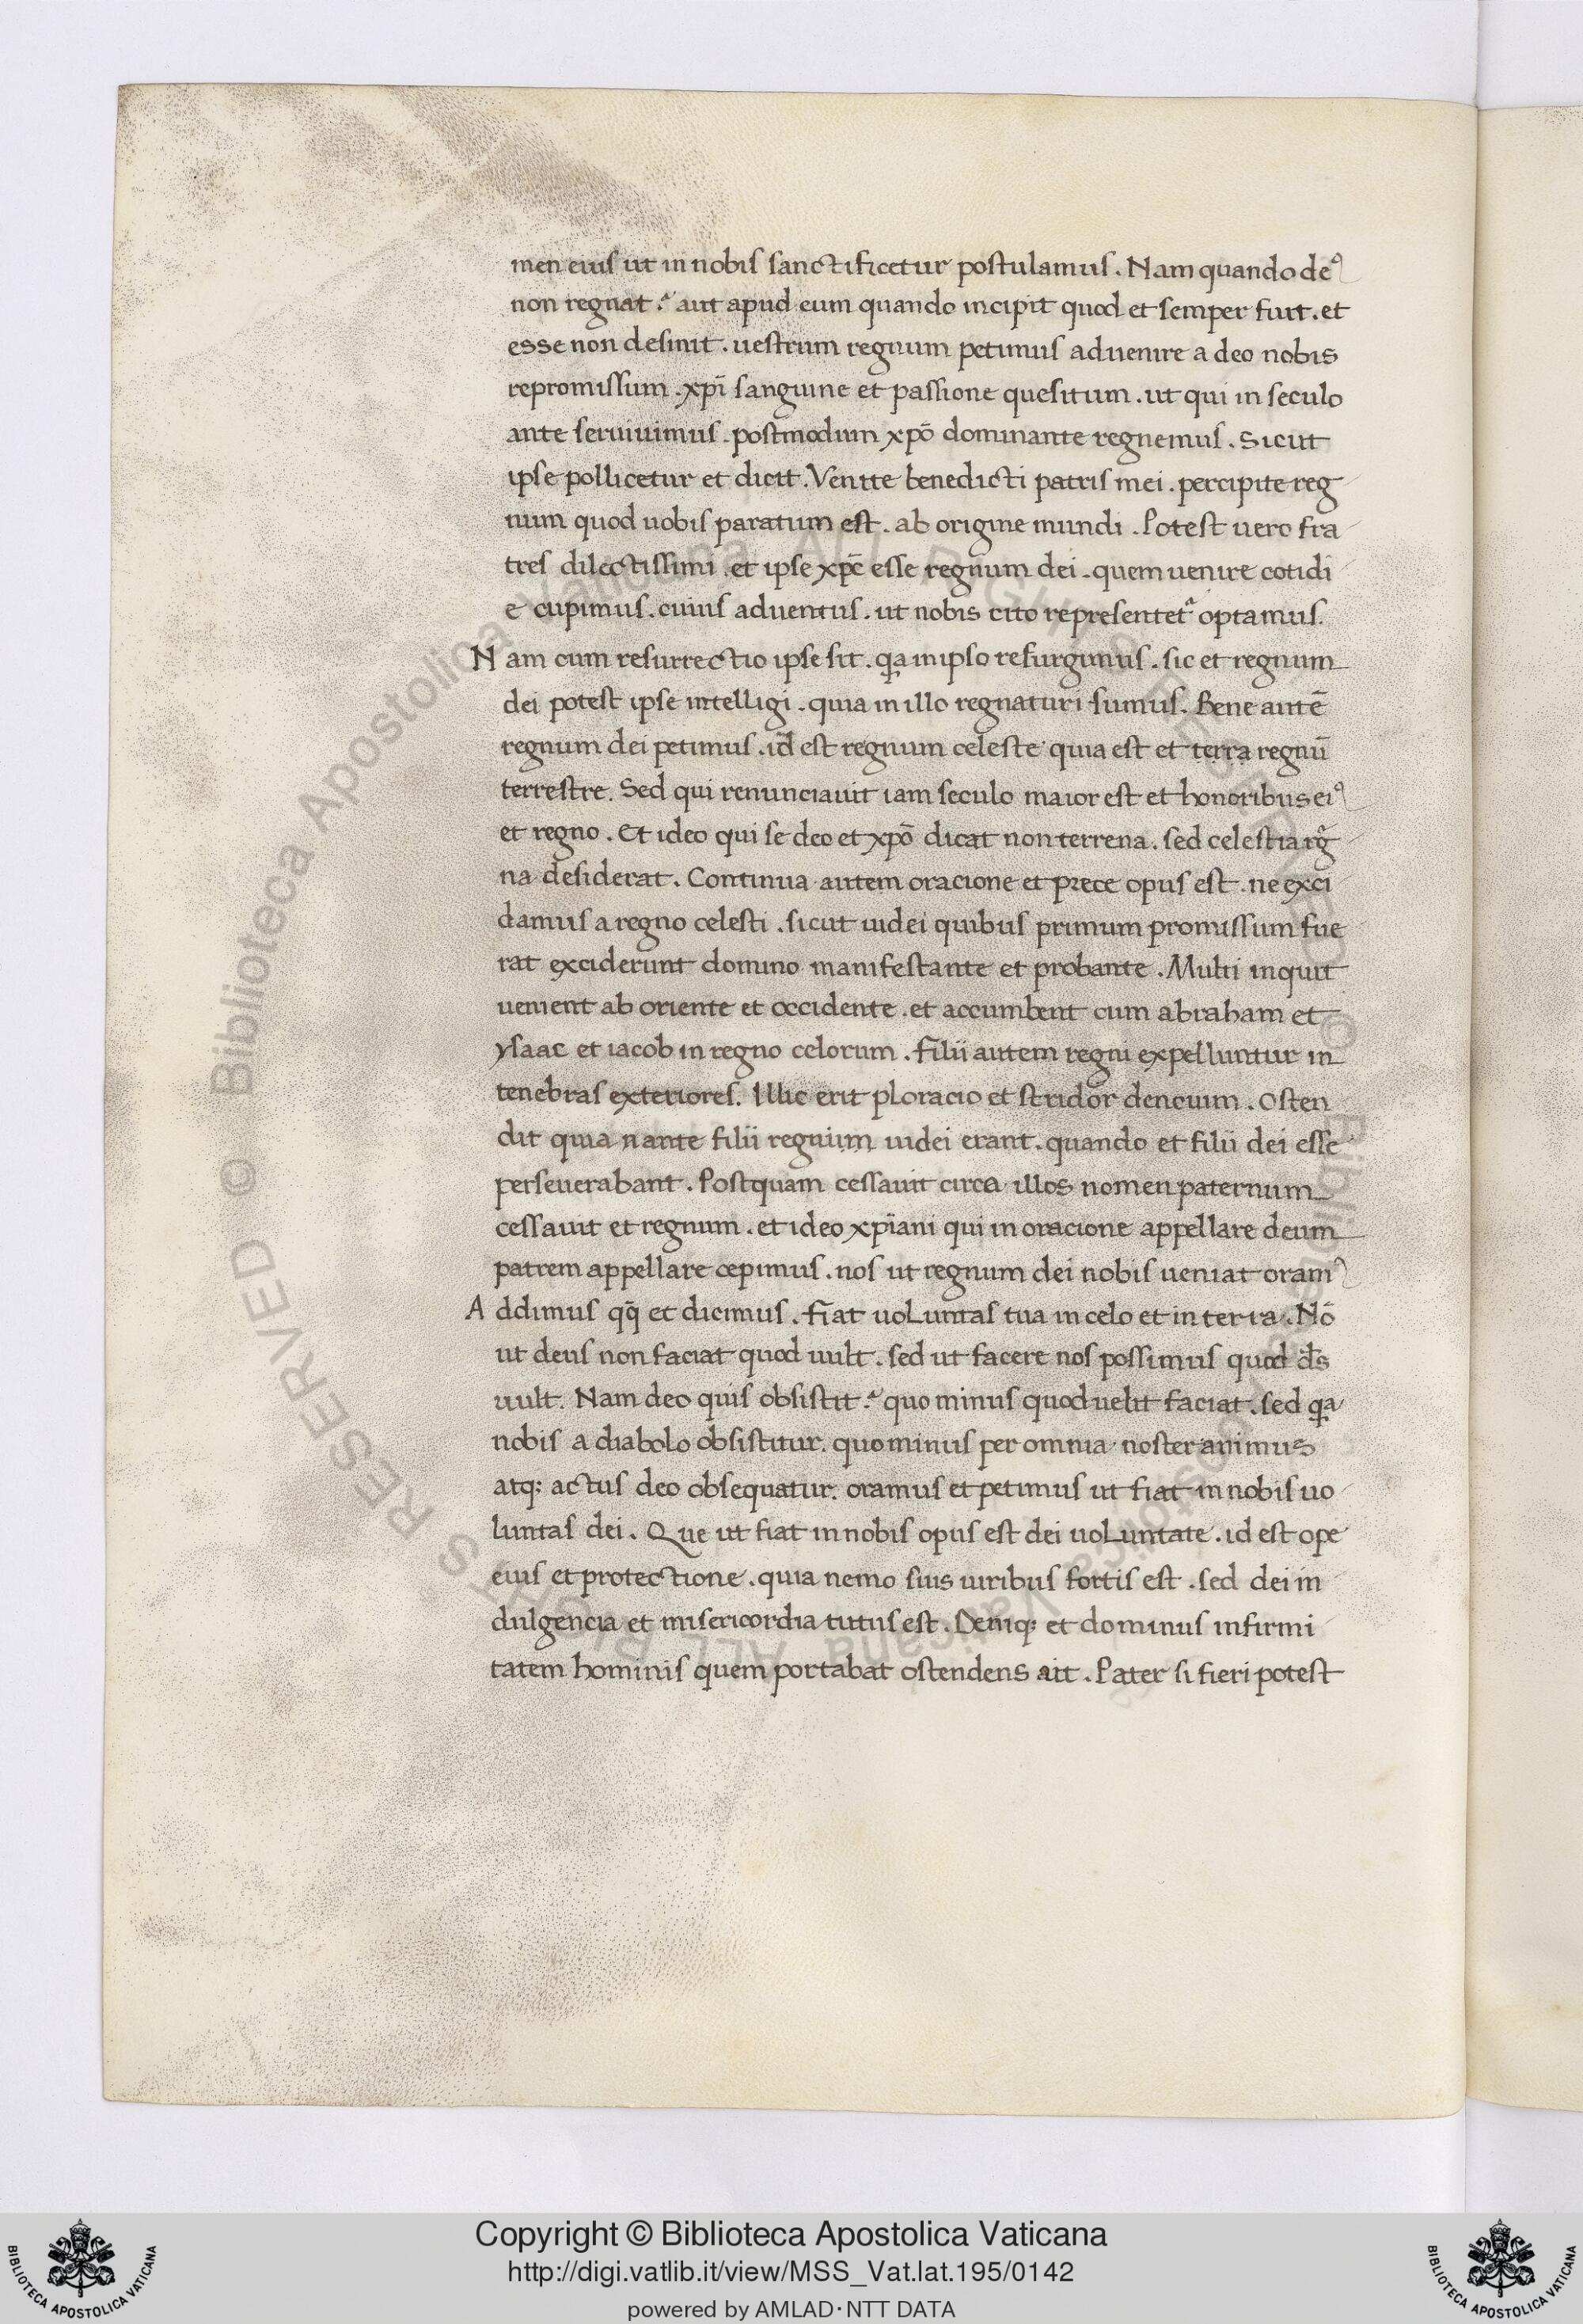 men eius ut in nobis sanctificetur postulamus. Nam quando deꝰ
non regnat? aut apud eum quando incipit quod et semper fuit. et
esse non desinit. uestrum regnum petimus aduenire a deo nobis
repromissum. xp̄i sanguine et passione quesitum. ut qui in seculo
ante seruiuimus. postmodum xp̄o dominante regnemus. Sicut
ipse pollicetur et dicit. Venite benedicti patris mei. percipite reg
num quod uobis paratum est. ab origine mundi. Potest uero fra
tres dilectissimi. et ipse xp̄c esse regnum dei. quem uenire cotidi
e cupimus. cuius aduentus. ut nobis cito representet᷑ optamus.
Nam cum resurrectio ipse sit. qa in ipso resurgimus. sic et regnum
dei potest ipse intelligi. quia in illo regnaturi sumus. Bene autē
regnum dei petimus. id est regnum celeste quia est et terra regnū
terrestre. Sed qui renunciauit iam seculo maior est et honoribus eiꝰ
et regno. Et ideo qui se deo et xp̄o dicat non terrena. sed celestia rḡ
na desiderat. Continua autem oracione et prece opus est. ne exci
damus a regno celesti. sicut iudei quibus primum promissum fue
rat exciderunt domino manifestante et probante. Multi inquit
uenient ab oriente et occidente. et accumbent cum abraham et
ysaac et iacob in regno celorum. filii autem regni expelluntur in
tenebras exteriores. Illic erit ploracio et stridor dencium. Osten
dit quia nante filii regnum iudei erant. quando et filii dei esse
perseuerabant. Postquam cessauit circa illos nomen paternum
cessauit et regnum. et ideo xp̄iani qui in oracione appellare deum
patrem appellare cepimus. nos ut regnum dei nobis ueniat oramꝰ
Addimus qq̄ et dicimus. fiat uoluntas tua in celo et in terra. Nō
ut deus non faciat quod uult. sed ut facere nos possimus quod ds̄
uult. Nam deo quis obsistit? quo minus quod uelit faciat. sed qa
nobis a diabolo obsistitur. quo minus per omnia noster animus
atq; actus deo obsequatur. oramus et petimus ut fiat in nobis uo
luntas dei. Que ut fiat in nobis opus est dei uoluntate. id est ope
eius et protectione. quia nemo suis uiribus fortis est. sed dei in
dulgencia et misericordia tutus est. Deniq; et dominus infirmi
tatem hominis quem portabat ostendens ait. Pater si fieri potest
© Biblioteca Apostolica Vaticana ALL RIGHTS RESERVED © Biblioteca Apostolica Vaticana ALL RIGHTS RESERVED
Copyright © Biblioteca Apostolica Vaticana
http://digi.vatlib.it/view/MSS_Vat.lat.195/0142
powered by AMLAD·NTT DATA
BIBLIOTECA APOSTOLICA VATICANA
BIBLIOTECA APOSTOLICA VATICANA